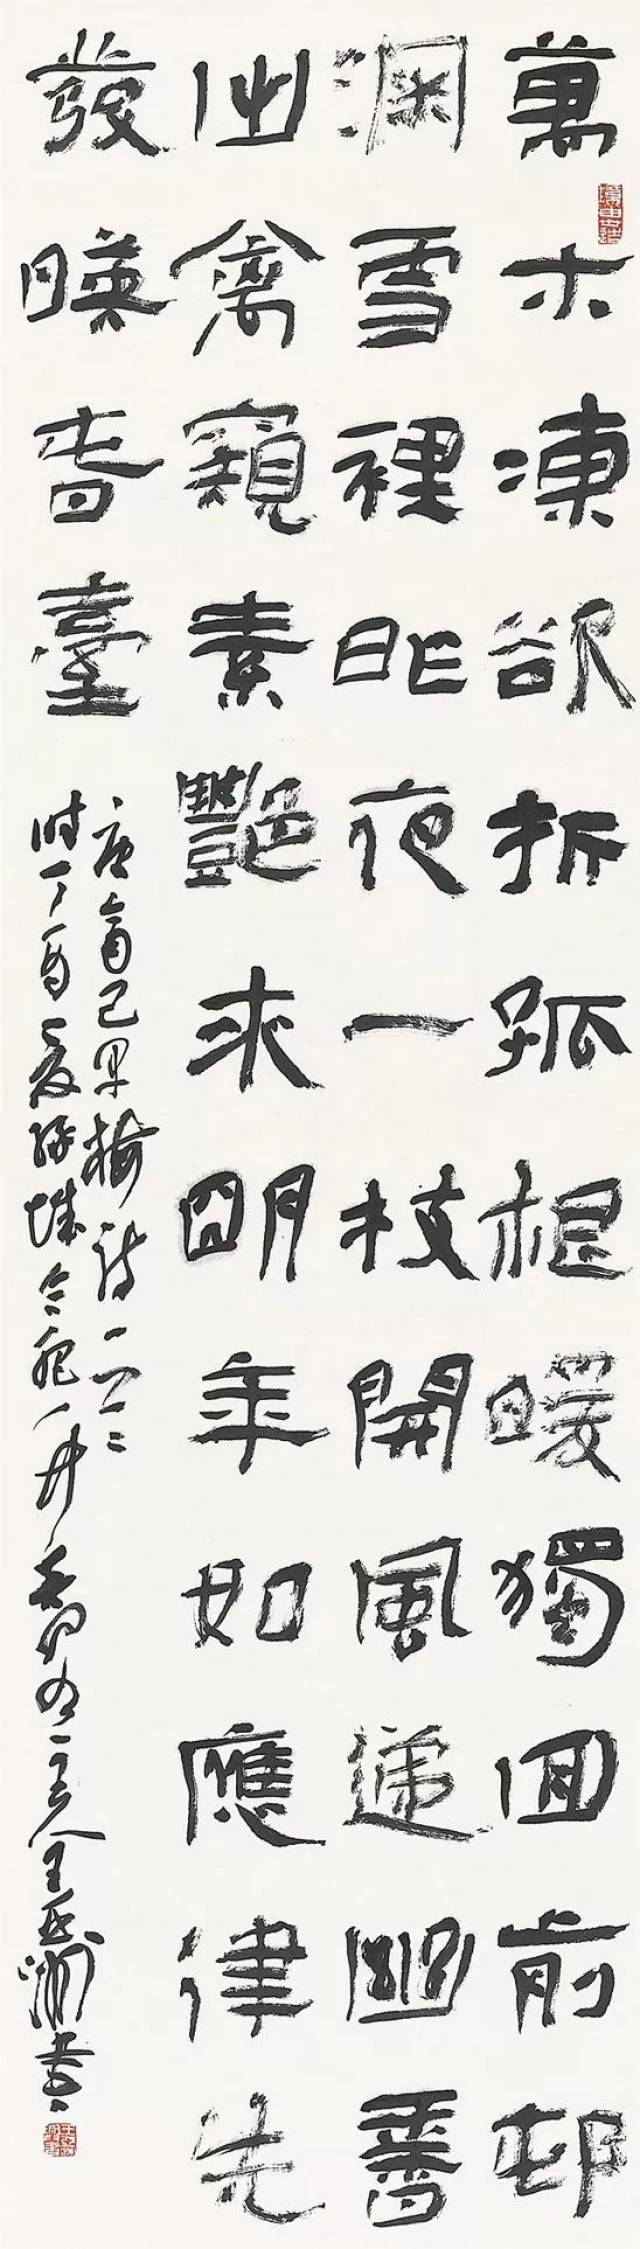 萬木凍欲折孤根暖獨回前邨
深雪裡昨夜一枝開風遞幽香
出禽窺素艷來明年如應律先
發暎春臺
唐齊己早梅詩一
時丁酉夏